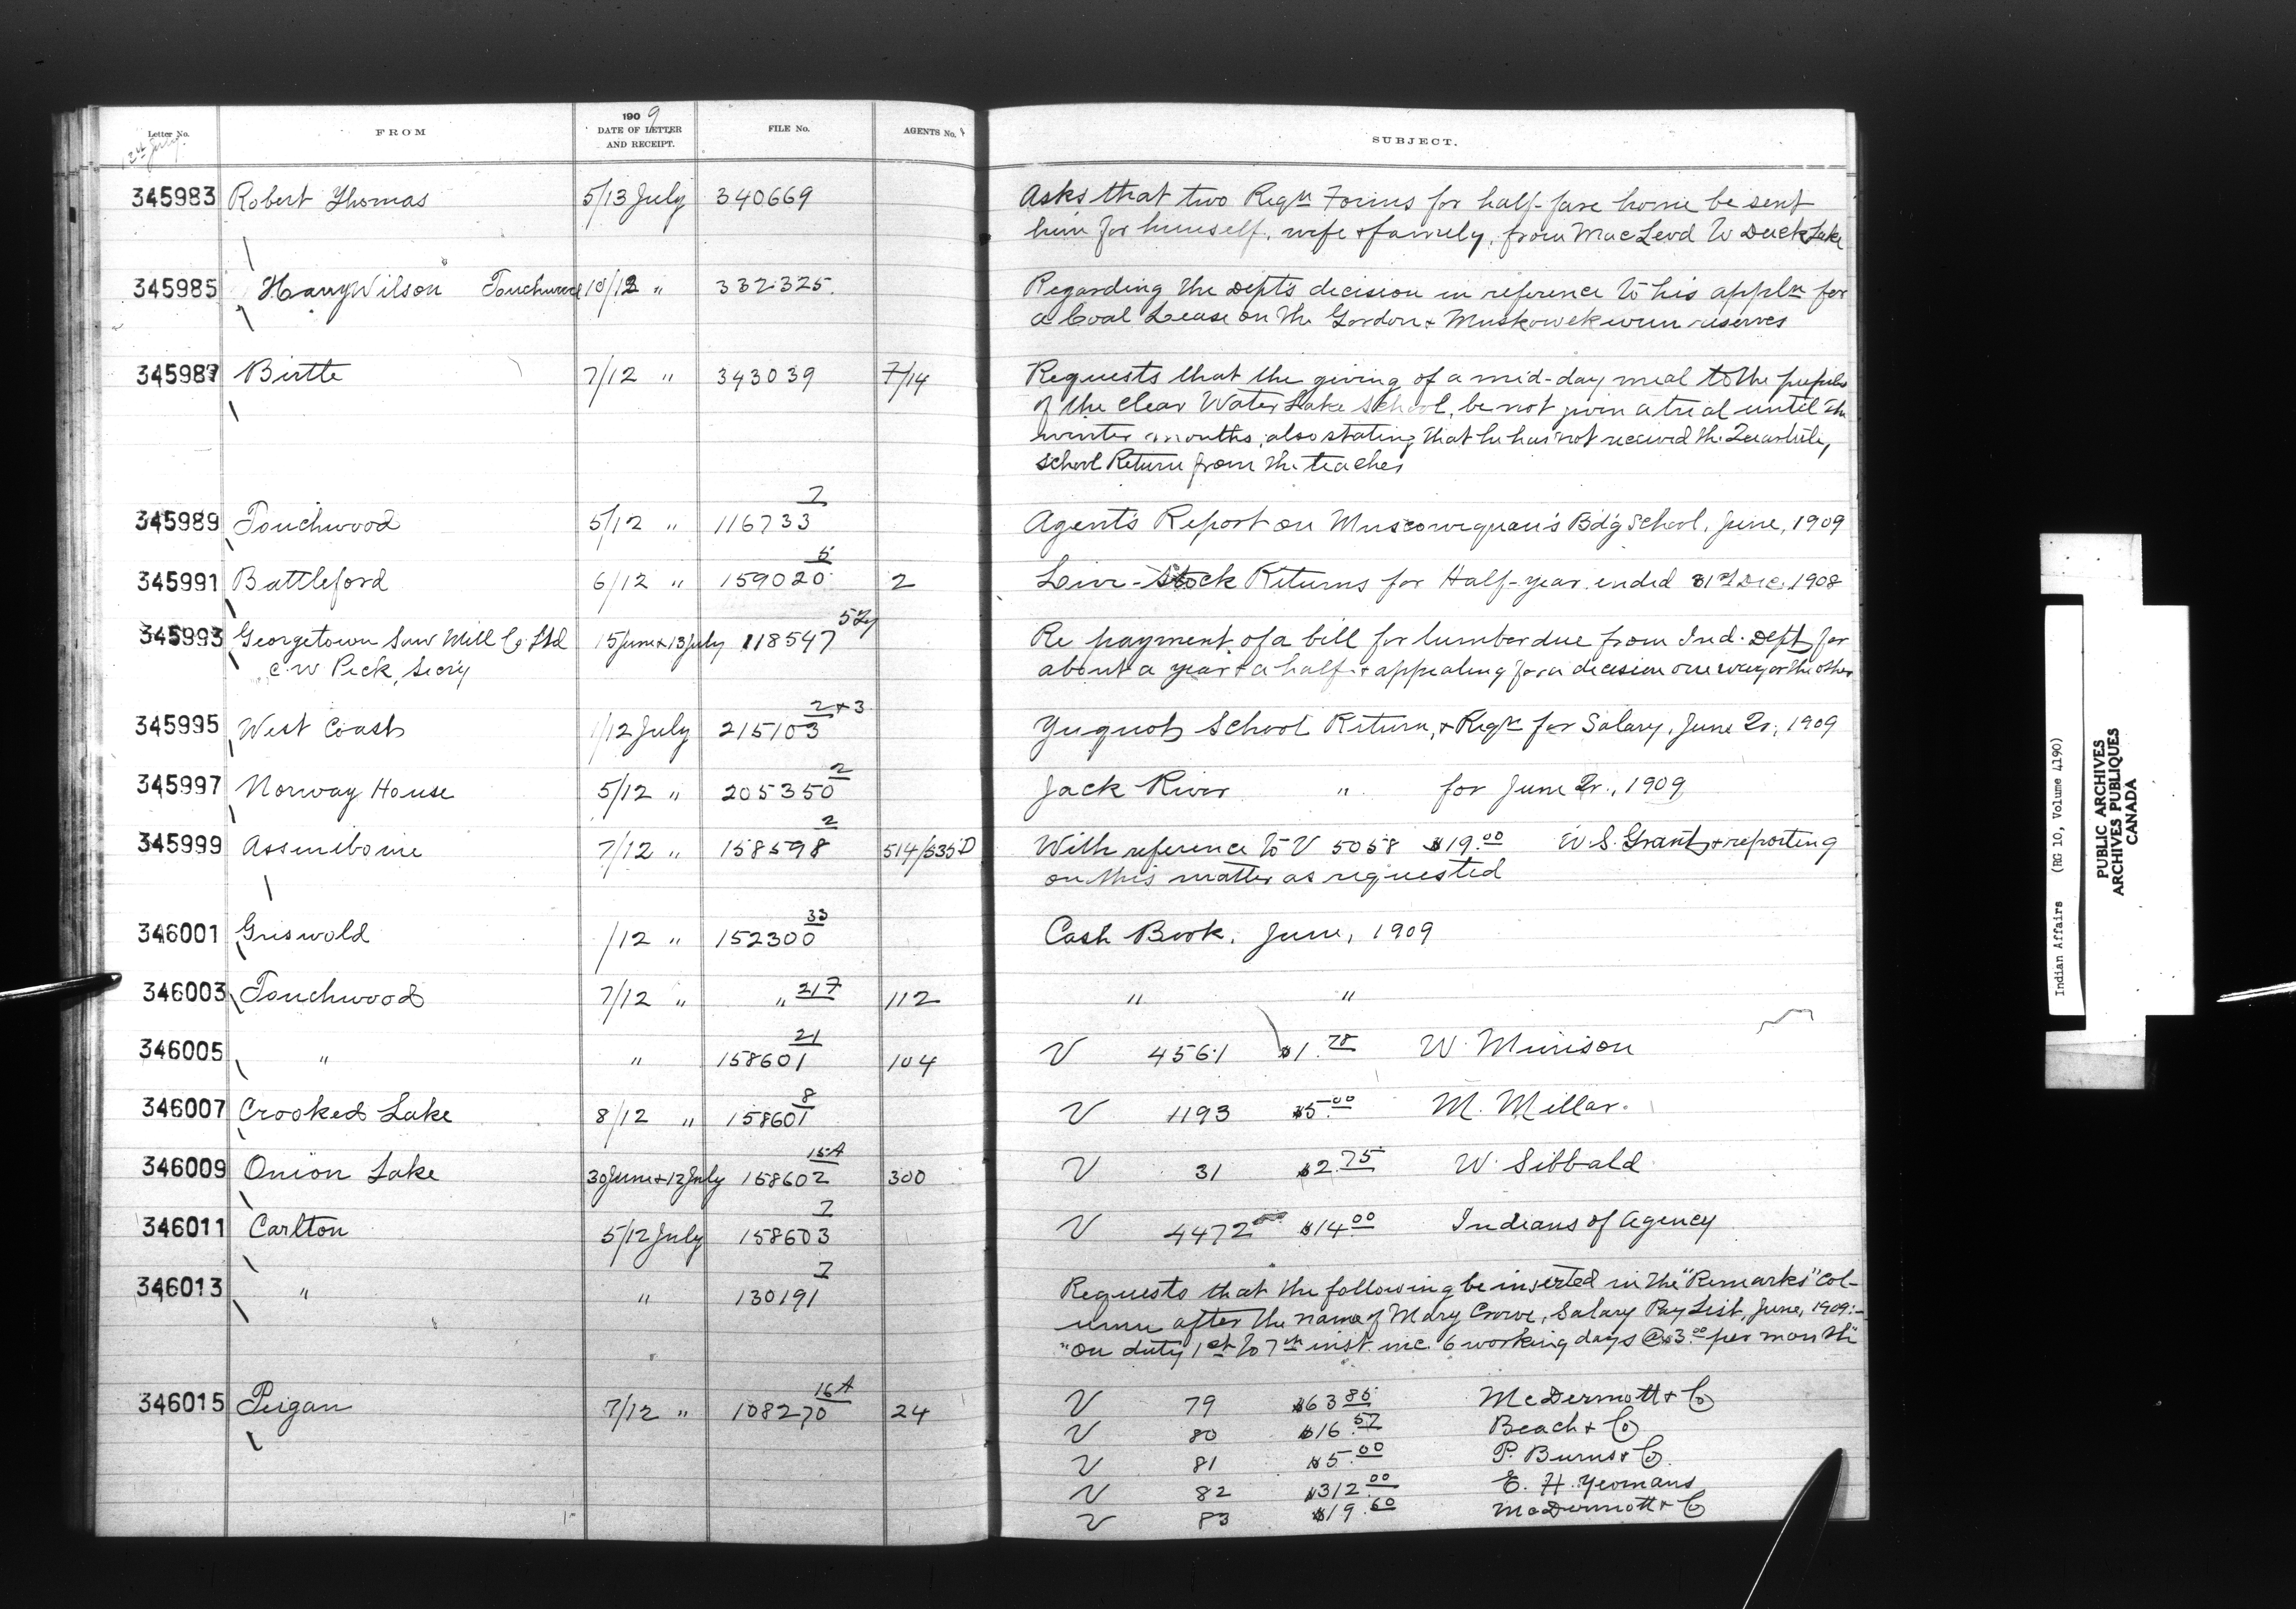 Letter No. FROM 1909 DATE OF LETTER AND RECEIPT. FILE No. AGENTS No. SUBJECT.
12th July
345983 Robert Thomas 5/13 July 340669 Asks that two Reqn Forms for half-fare home be sent
him for himself, wife & family, from MacLeod to Duck Lake
345985 Harry Wilson Touchwood 10/12 " 332325. Regarding the Dept's decision in reference to his appln for
a Coal Lease on the Gordon & Muskowekwun reserves
345987 Birtle 7/12 " 343039 7/14 Requests that the giving of a mid-day meal to the pupils
of the Clear Water Lake School, be not given a trial until the
winter months, also stating that he has not received the
School Return from the teacher
345989 Touchwood 5/12 " 116733 7 Agent's Report on Muscowequan's Bd'g School, June, 1909
345991 Battleford 6/12 " 159020 5 2 Live-Stock Returns for Half-year ended 31st Dec. 1908
345993 Georgetown Saw Mill Co Ltd 15 June & 13 July 118547 Re payment of a bill for lumber due from Ind. Dept for
C. W Peck, Sec'y about a year & a half & appealing for a decision one way or the other
345995 West Coast 1/12 July 215103 2+3 Yuquot School Return, & Reqn for Salary, June Qr, 1909
345997 Norway House 5/12 " 205350 2 Jack River " for June Qr., 1909
345999 Assiniboine 7/12 " 158598 2 514/535 D With reference to V 5058 $19.00 W. S. Grant, & reporting
on this matter as requested
346001 Griswold /12 " 152300 33 Cash Book, June, 1909
346003 Touchwood 7/12 " " 217 112 " "
346005 " " 158601 21 104 V 4561 $1.78 W. Munison
346007 Crooked Lake 8/12 " 158601 8 V 1193 $5.00 M. Millar.
346009 Onion Lake 30 June & 12 July 158602 15A 300 V 31 $2.75 W. Sibbald
346011 Carlton 5/12 July 158603 7 V 4472 $14.00 Indians of Agency
346013 " " 130191 7 Requests that the following be inserted in the "Remarks" Col-
umn after the name of Mary Crowe, Salary Pay List, June, 1909:-
"On duty 1st to 7th inst. inc. 6 working days @ $3.00 per month"
346015 Peigan 7/12 " 108270 16A 24 V 79 $63.85 McDermott & Co
V 80 $16.57 Beach & Co
V 81 $5.00 P. Burns & Co.
V 82 $312.00 E. H. Yeomans
V 83 $19.60 McDermott & Co
Indian Affairs (RG 10, Volume 4190)
PUBLIC ARCHIVES
ARCHIVES PUBLIQUES
CANADA